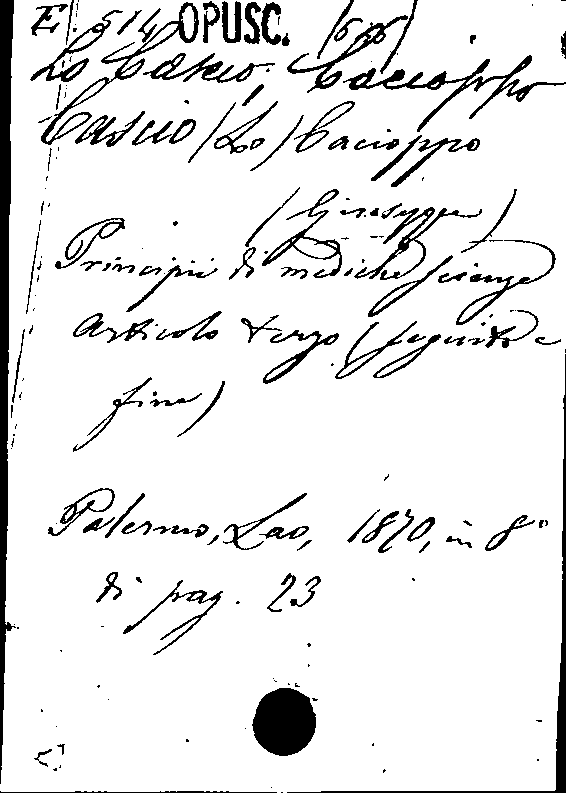 E. 514 OPUSC. (626)
Lo Cascio, Cacioppo
Cascio (Lo) Cacioppo
(Giuseppe)
Principii di mediche scienze
Articolo terzo (seguito e
fine)
Palermo, Lao, 1870, in 8°
di pag. 23